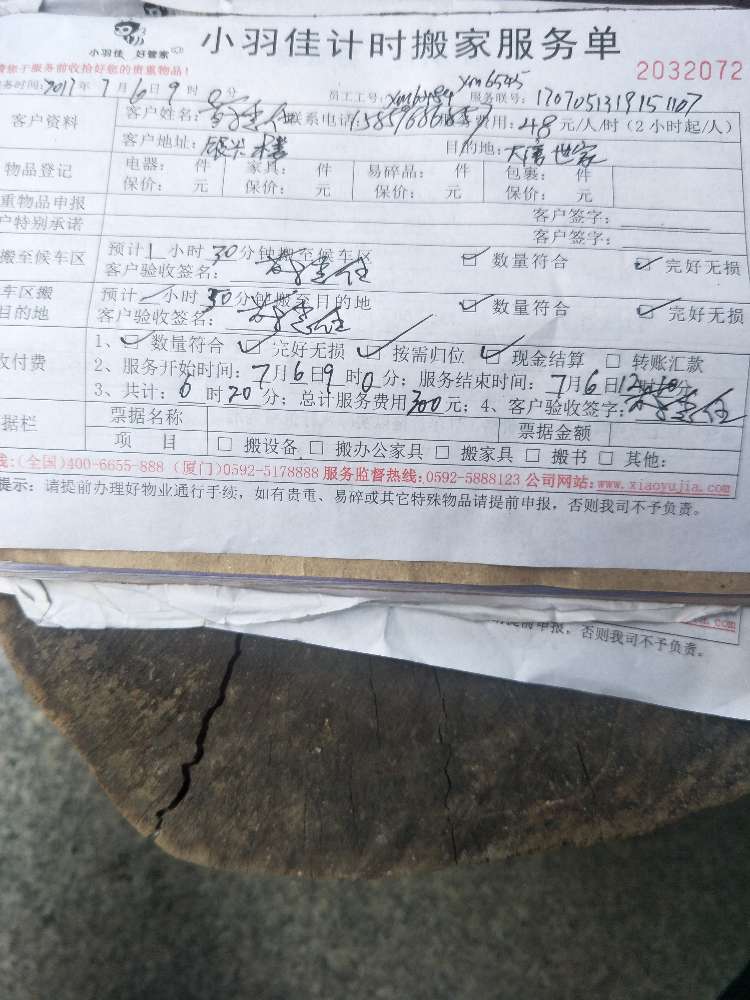 小羽佳 好管家
小羽佳计时搬家服务单
请您于服务前收拾好您的贵重物品!
2032072
务时间:2017年7月6日9时0分 员工工号: xm6484 xm6545 服务联号: 1707051319151107
客户资料 客户姓名: 联系电话 费用: 48元/人/时(2小时起/人)
客户地址: 目的地: 大唐世家
物品登记 电器: 件 家具: 件 易碎品: 件 包裹: 件
保价: 元 保价: 元 保价: 元 保价: 元
重物品申报 客户签字:
户特别承诺 客户签字:
搬至候车区 预计1小时30分钟搬至候车区 数量符合 完好无损
客户验收签名:
车区搬目的地 预计 小时30分钟搬至目的地 数量符合 完好无损
客户验收签名:
收付费 1、数量符合 完好无损 按需归位 现金结算 转账汇款
2、服务开始时间:7月6日9时0分;服务结束时间:7月6日12时10分
3、共计:6时20分;总计服务费用300元;4、客户验收签字:
据栏 票据名称 票据金额
项目 搬设备 搬办公家具 搬家具 搬书 其他:
线:(全国)400-6655-888 (厦门)0592-5178888 服务监督热线:0592-5888123 公司网站:www.xiaoyujia.com
提示:请提前办理好物业通行手续,如有贵重、易碎或其它特殊物品请提前申报,否则我司不予负责。
.com
前申报,否则我司不予负责。